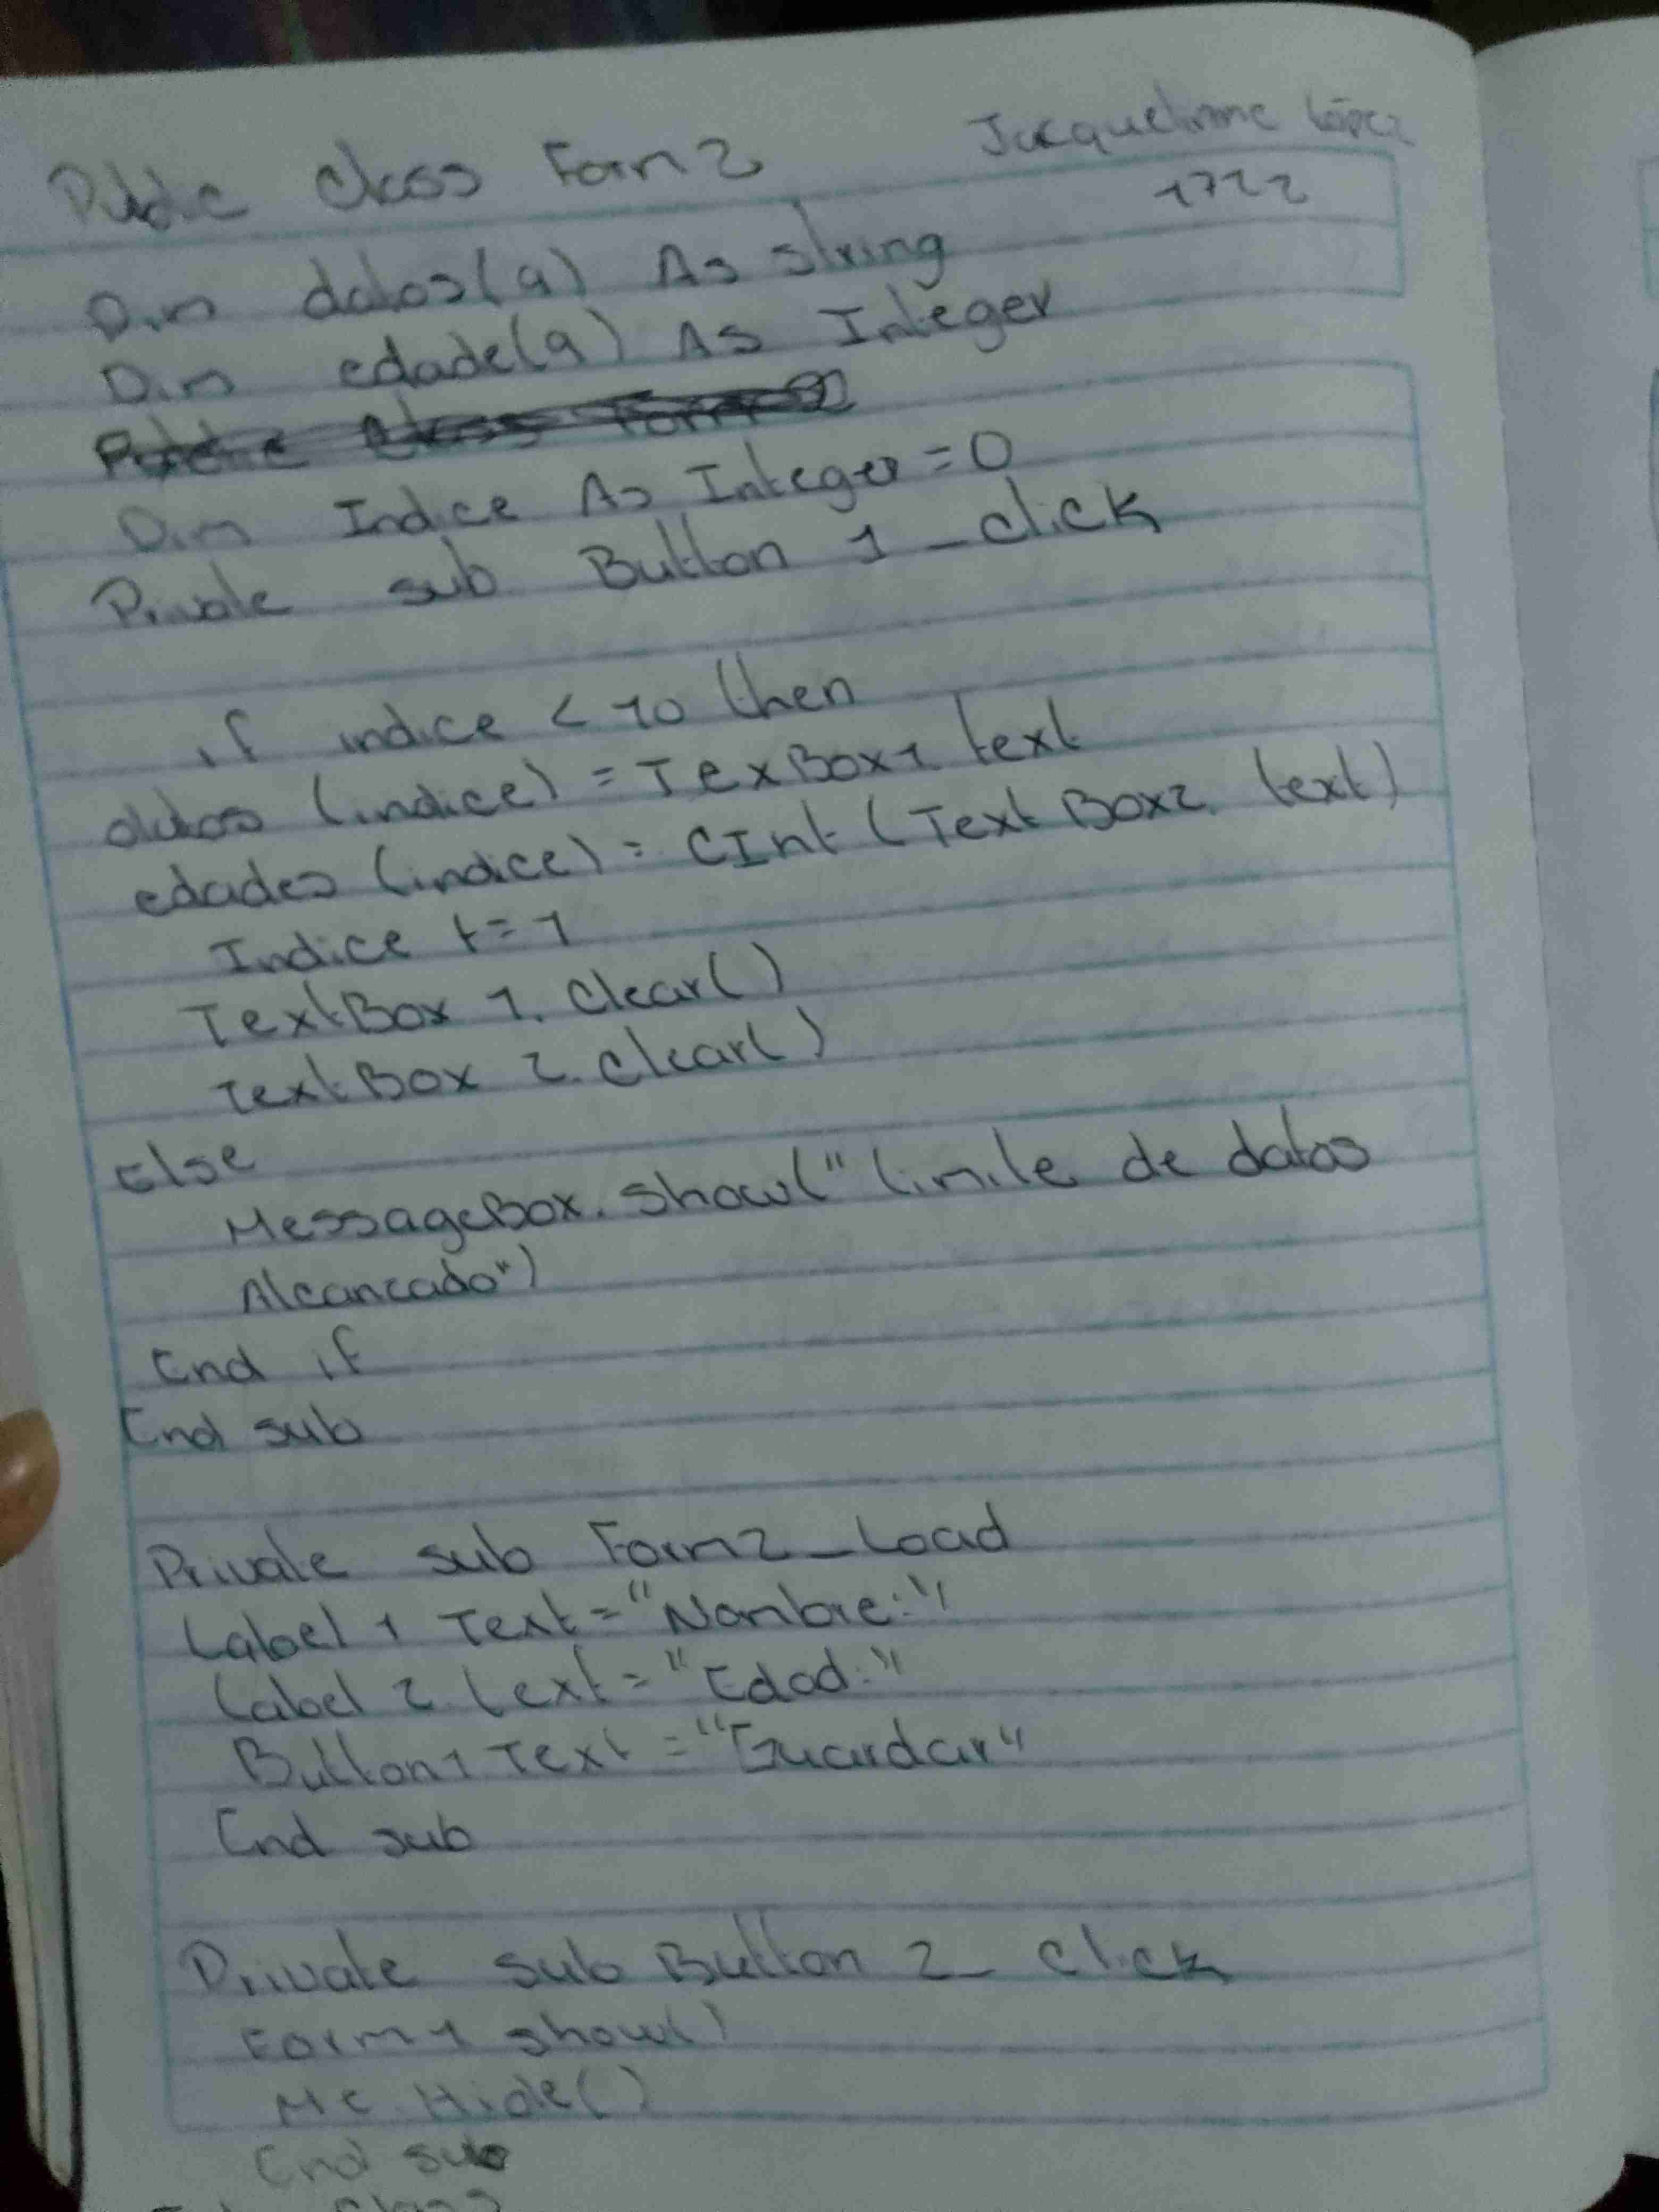 Jacquelinne López
Public class Form 2
1722
Dim datos(9) As string
Dim edade(9) As Integer
Public Class Form 2
Dim Indice As Integer = 0
Private sub Button 1 _ click
if indice < 10 then
datos (indice) = TexBox1. text
edades (indice) = CInt (Text Box2. text)
Indice += 1
TextBox 1. Clear()
TextBox 2. Clear()
Else
MessageBox. Show(" limite de datos
Alcanzado")
End if
End sub
Private sub Form2 _ Load
Label 1 Text = "Nombre:"
Label 2 text = "Edad:"
Button1 Text = "Guardar"
End sub
Private sub Button 2 _ Click
Form 1 show()
Me. Hide()
End sub
Class